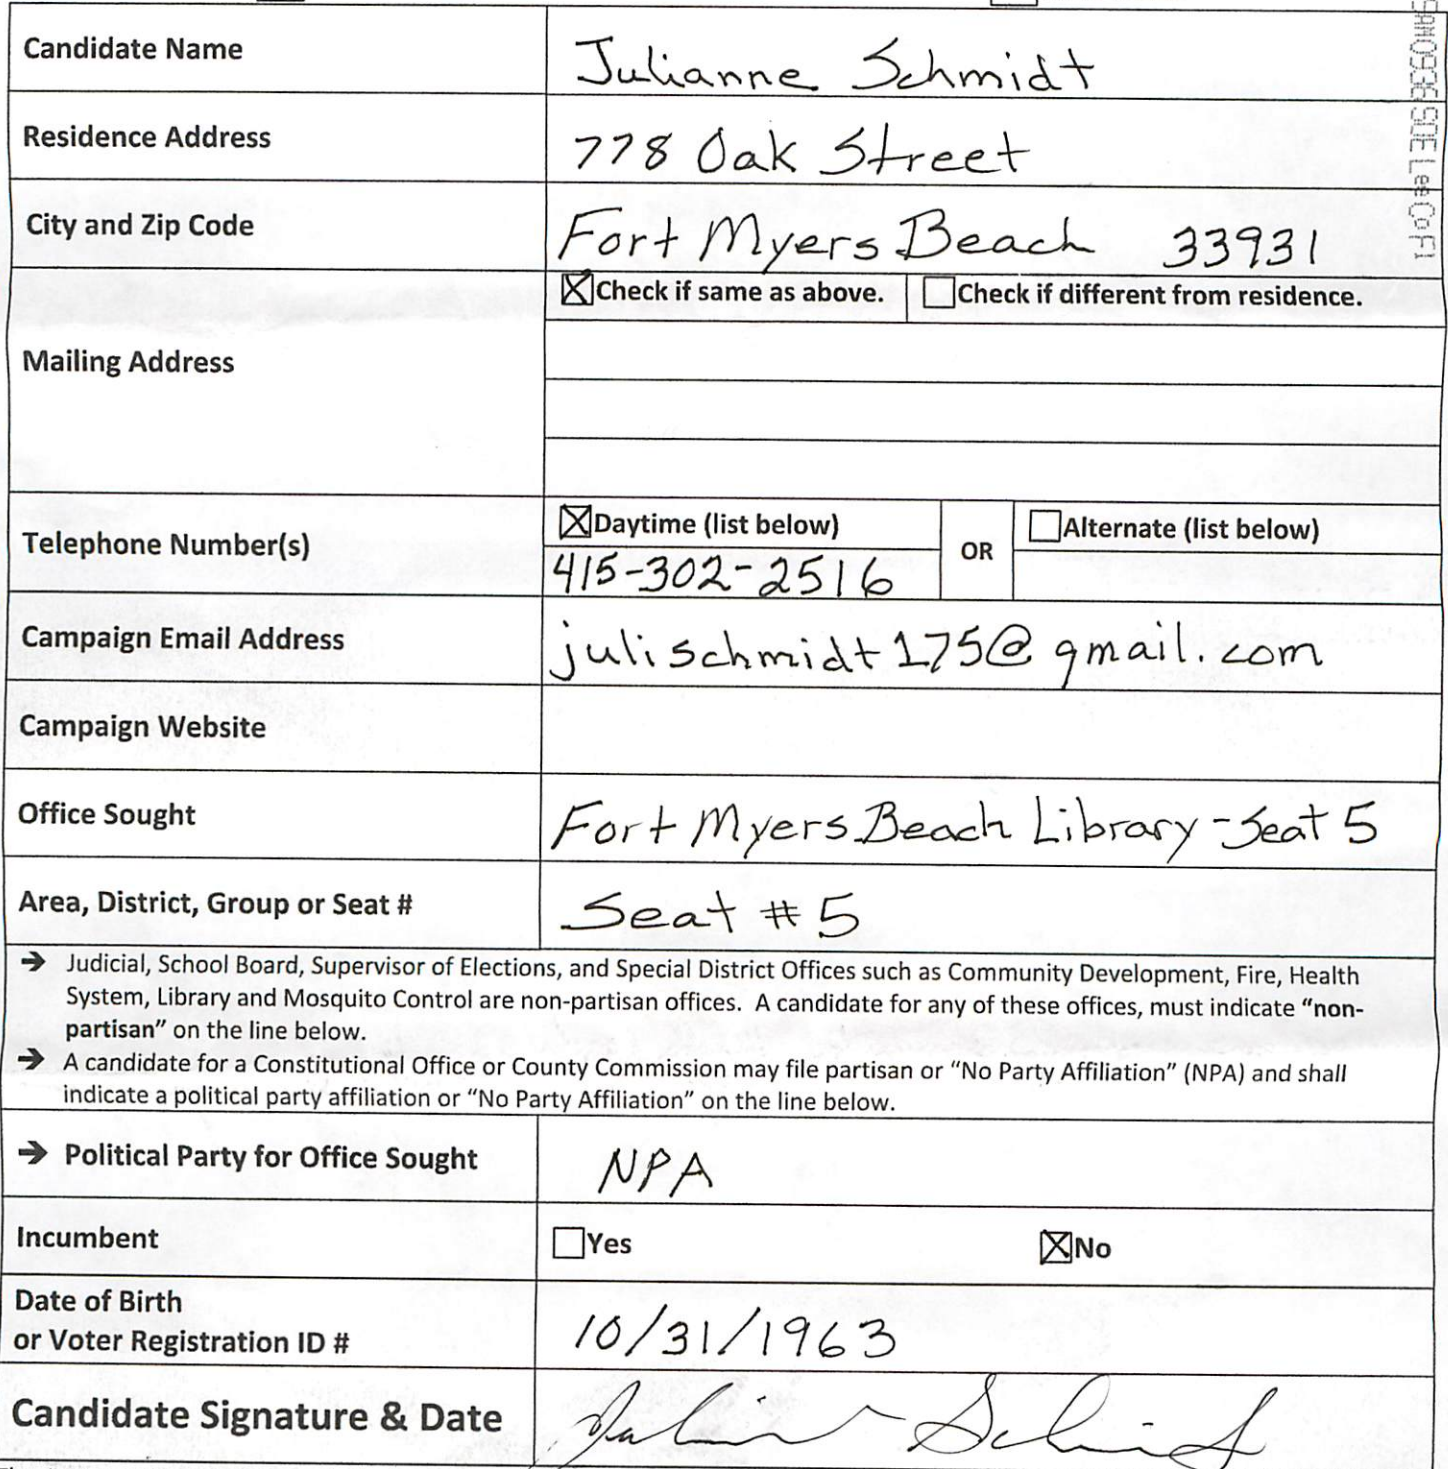 Candidate Name Julianne Schmidt
Residence Address 778 Oak Street
City and Zip Code Fort Myers Beach 33931
☒Check if same as above. ☐Check if different from residence.
Mailing Address
☒Daytime (list below) OR ☐Alternate (list below)
Telephone Number(s)
415-302-2516
Campaign Email Address julischmidt175@gmail.com
Campaign Website
Office Sought Fort Myers Beach Library - Seat 5
Area, District, Group or Seat # Seat #5
→ Judicial, School Board, Supervisor of Elections, and Special District Offices such as Community Development, Fire, Health
System, Library and Mosquito Control are non-partisan offices. A candidate for any of these offices, must indicate "non-
partisan" on the line below.
→ A candidate for a Constitutional Office or County Commission may file partisan or "No Party Affiliation" (NPA) and shall
indicate a political party affiliation or "No Party Affiliation" on the line below.
→ Political Party for Office Sought NPA
Incumbent ☐Yes ☒No
Date of Birth
or Voter Registration ID # 10/31/1963
Candidate Signature & Date
SOE Lee Co Fl